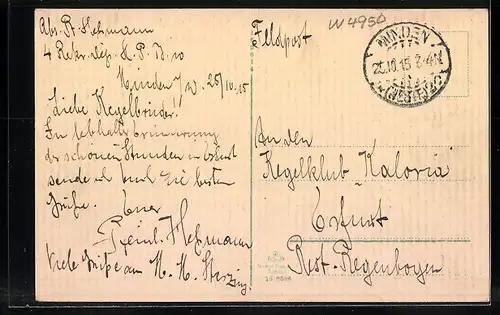 Abs. R. Hehmann
4 Rekr. dep. H. P. B. 10
Minden i/W. 25/10.15
Liebe Kegelbrüder!
In lebhafter Erinnerung
der schönen Stunden in Erfurt
sende ich Euch die besten
Grüße. Euer
Reinh. Hehmann
Viele Grüße an
W 4950
Feldpost
MINDEN
25.10.15 3-4N
(WESTF)
An den
Kegelklub "Kaloria"
Erfurt
Rest. Regenbogen